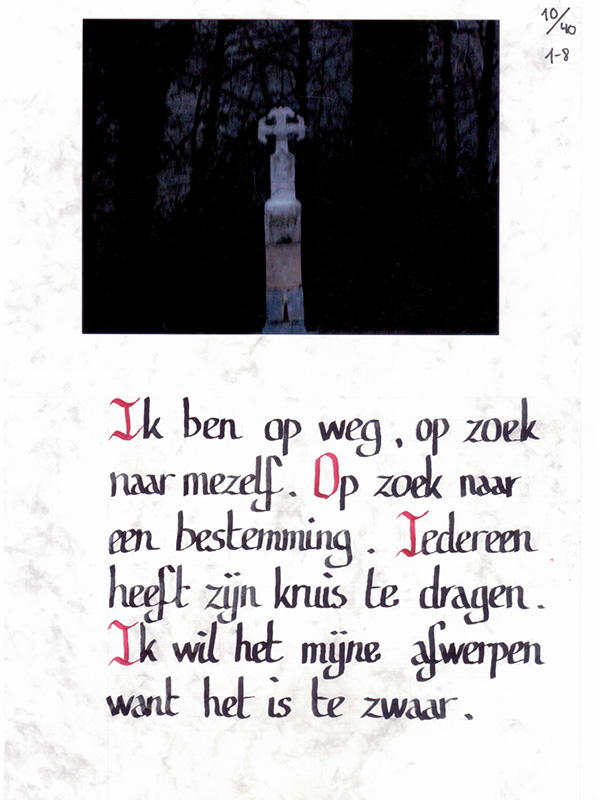 10/40
1-8
Ik ben op weg, op zoek
naar mezelf. Op zoek naar
een bestemming. Iedereen
heeft zijn kruis te dragen.
Ik wil het mijne afwerpen
want het is te zwaar.